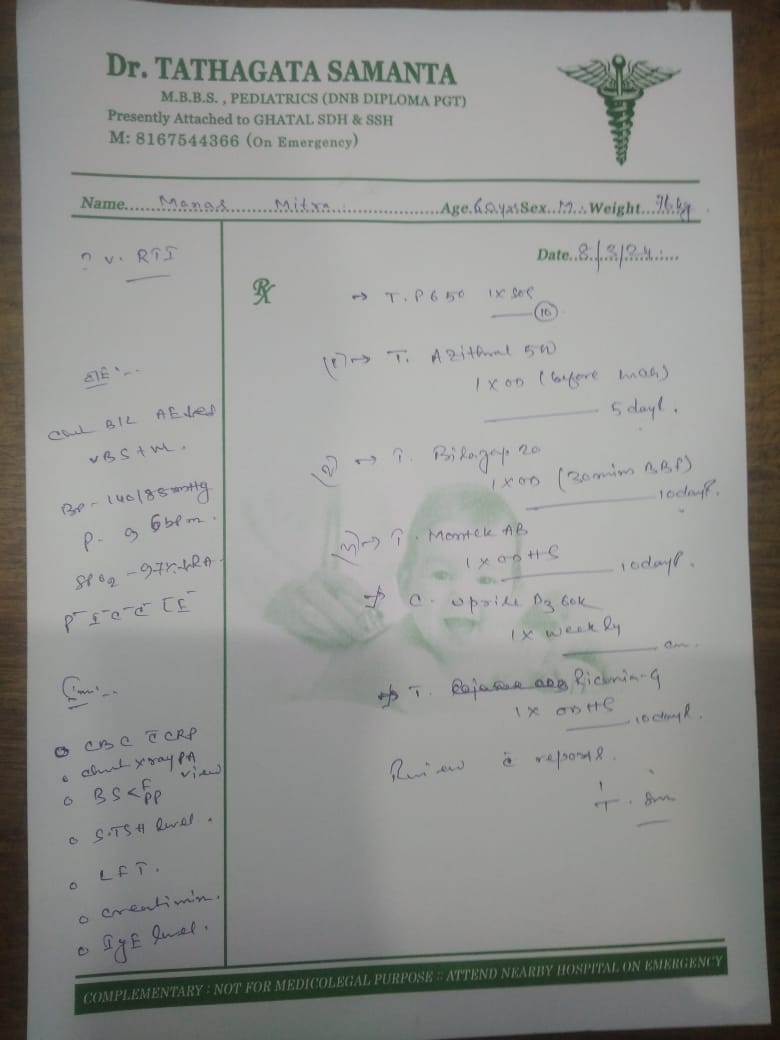 Dr. TATHAGATA SAMANTA
M.B.B.S. , PEDIATRICS (DNB DIPLOMA PGT)
Presently Attached to GHATAL SDH & SSH
M: 8167544366 (On Emergency)
Name......Manas Mitra......Age.60 yrs Sex..M..Weight...76 kg
Date..8/3/24......
? v. RTI
Rx
→ T. P 650 1 x SOS
(10)
→ T. Azithral 500
1 x OD (before meal)
5 days.
→ T. Bilagap 20
1 x OD (30 mins BBF)
10 days.
→ T. Montek AB
1 x OD HS
10 days.
→ C. Uprise D3 60K
1 x weekly
→ T. G
1 x OD HS
10 days.
Review c̄ reports.
O/E:-
Chest B/L AE
VBS + nt.
BP - 140/85 mmHg
P - 96 bpm.
SPO2 - 97% RA
Inv:-
o CBC c̄ CRP
o Chest X ray PA view
o BS < F PP
o S.TSH level.
o LFT.
o creatinin.
o IgE level.
COMPLEMENTARY : NOT FOR MEDICOLEGAL PURPOSE :: ATTEND NEARBY HOSPITAL ON EMERGENCY